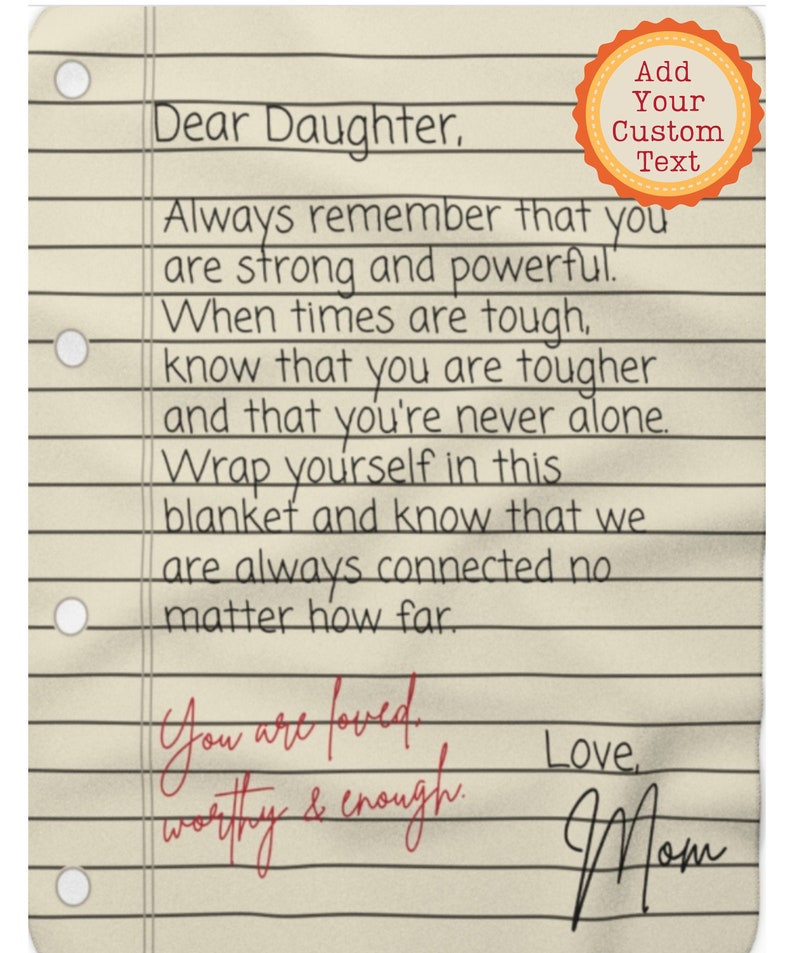 Add
Your
Custom
Text
Dear Daughter,
Always remember that you
are strong and powerful.
When times are tough,
know that you are tougher
and that you're never alone.
Wrap yourself in this
blanket and know that we
are always connected no
matter how far.
You are loved,
worthy & enough.
Love,
Mom